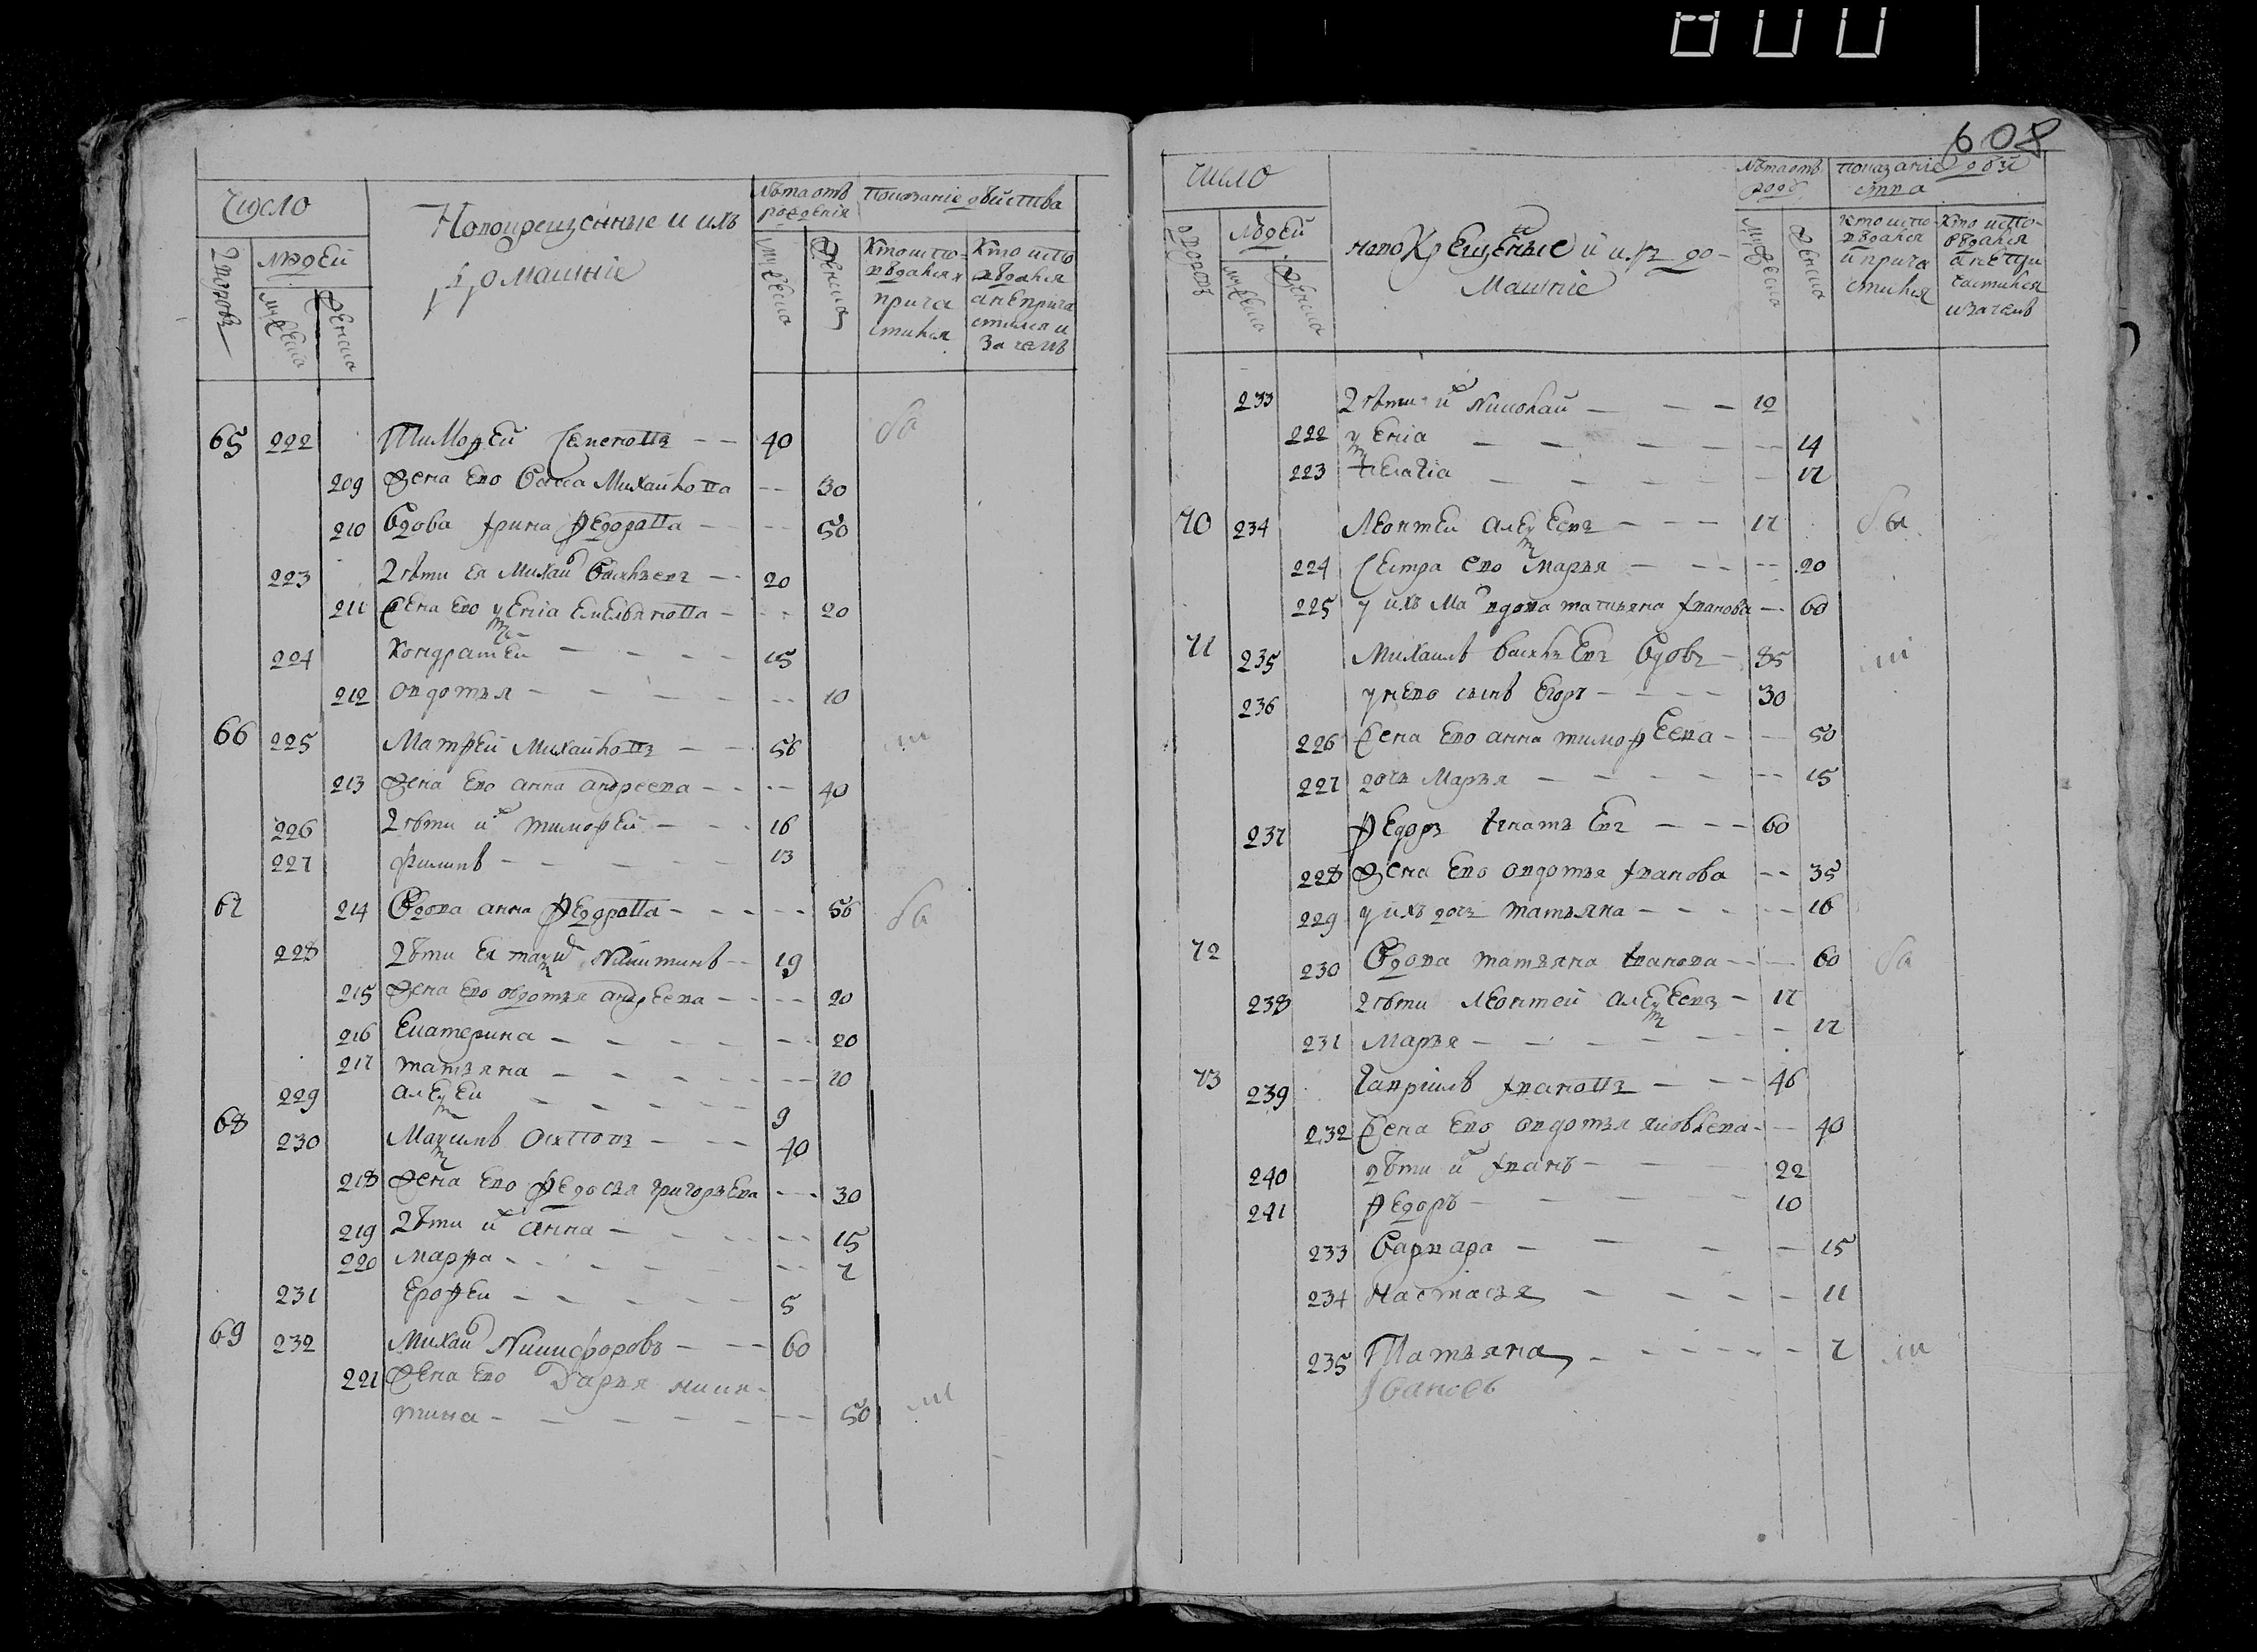 600
608
Число
Новокрещенные и ихъ
домашніе
Лѣта отъ
рожденія
Показаніе действа
дворовъ
людей
мужеска
женска
мужеска
женска
Кто испо-
вѣдался и
прича
стился
Кто испо
вѣдался
а не прича
стился и
за чемъ
65 222 Тимофей Семеновъ — — 40 ва
209 Жена ево Васса Михайлова — — 30
210 Вдова Ирина Федорова — — — 50
223 Дѣти ея Михайло Васильевъ — — 20
211 Жена ево Ксенія Емельянова — — — 20
224 Кондратей — — — — 15
212 овдотья — — — — — 10
66 225 Матфей Михайловъ — — 56
213 Жена ево анна андреева — — — — 40
226 Дѣти их тимофей — — — 16
227 филипъ — — — — — 13
67 214 Вдова анна Федорова — — — — — 56 ва
228 Дѣти ея Никитинъ — — 19
215 Жена ево овдотья андреева — — — — 20
216 Екатерина — — — — — — 20
217 татьяна — — — — — — 10
229 алексей — — — — — 9
68 230 Максимъ — — — 40
218 Жена ево Федосья григорьева — — — 30
219 Дѣти их анна — — — — — — 15
220 марфа — — — — — — 7
231 Ерофеи — — — — — 5
69 232 Михайло Никифоровъ — — — 60
221 Жена ево Дарья ники-
тина — — — — — — 50
Число
новокрещеные и ихъ до-
машніе
Лѣта отъ
рожд
показаніе дѣй
ства
дворовъ
людей
мужеска
женска
мужеска
женска
кто испо-
вѣдался
и прича
стился
Кто испо-
вѣдался
а не при
частился
и за чемъ
233 Дѣти их Николай — — — 12
222 ксенія — — — — — — 14
223 — — — — — — 17
70 234 Леонтей алексеевъ — — — 17 ва
224 сестра ево марья — — — — — 20
225 у ихъ вдова татьяна Иванова — — 60
71 235 Михаилъ васильевъ вдовъ — 85
236 у нево сынъ Егоръ — — — — 30
226 Жена ево анна тимофеева — — — 50
227 дочь Марья — — — — — — 15
237 Федоръ Игнатьевъ — — — 60
228 Жена ево овдотья Иванова — — 35
229 у ихъ дочь татьяна — — — — — 16
72 230 Вдова татьяна Иванова — — — 60 ва
238 Дѣти Леонтей алексеевъ — 17
231 Марья — — — — — — 17
73 239 Гаврилъ Ивановъ — — — 46
232 Жена ево овдотья яковлева — — 40
240 дѣти их Иванъ — — — 22
241 Федоръ — — — — 10
233 Варвара — — — — 15
234 Настасья — — — — — 11
235 Татьяна — — — — — — 7
Ивановъ